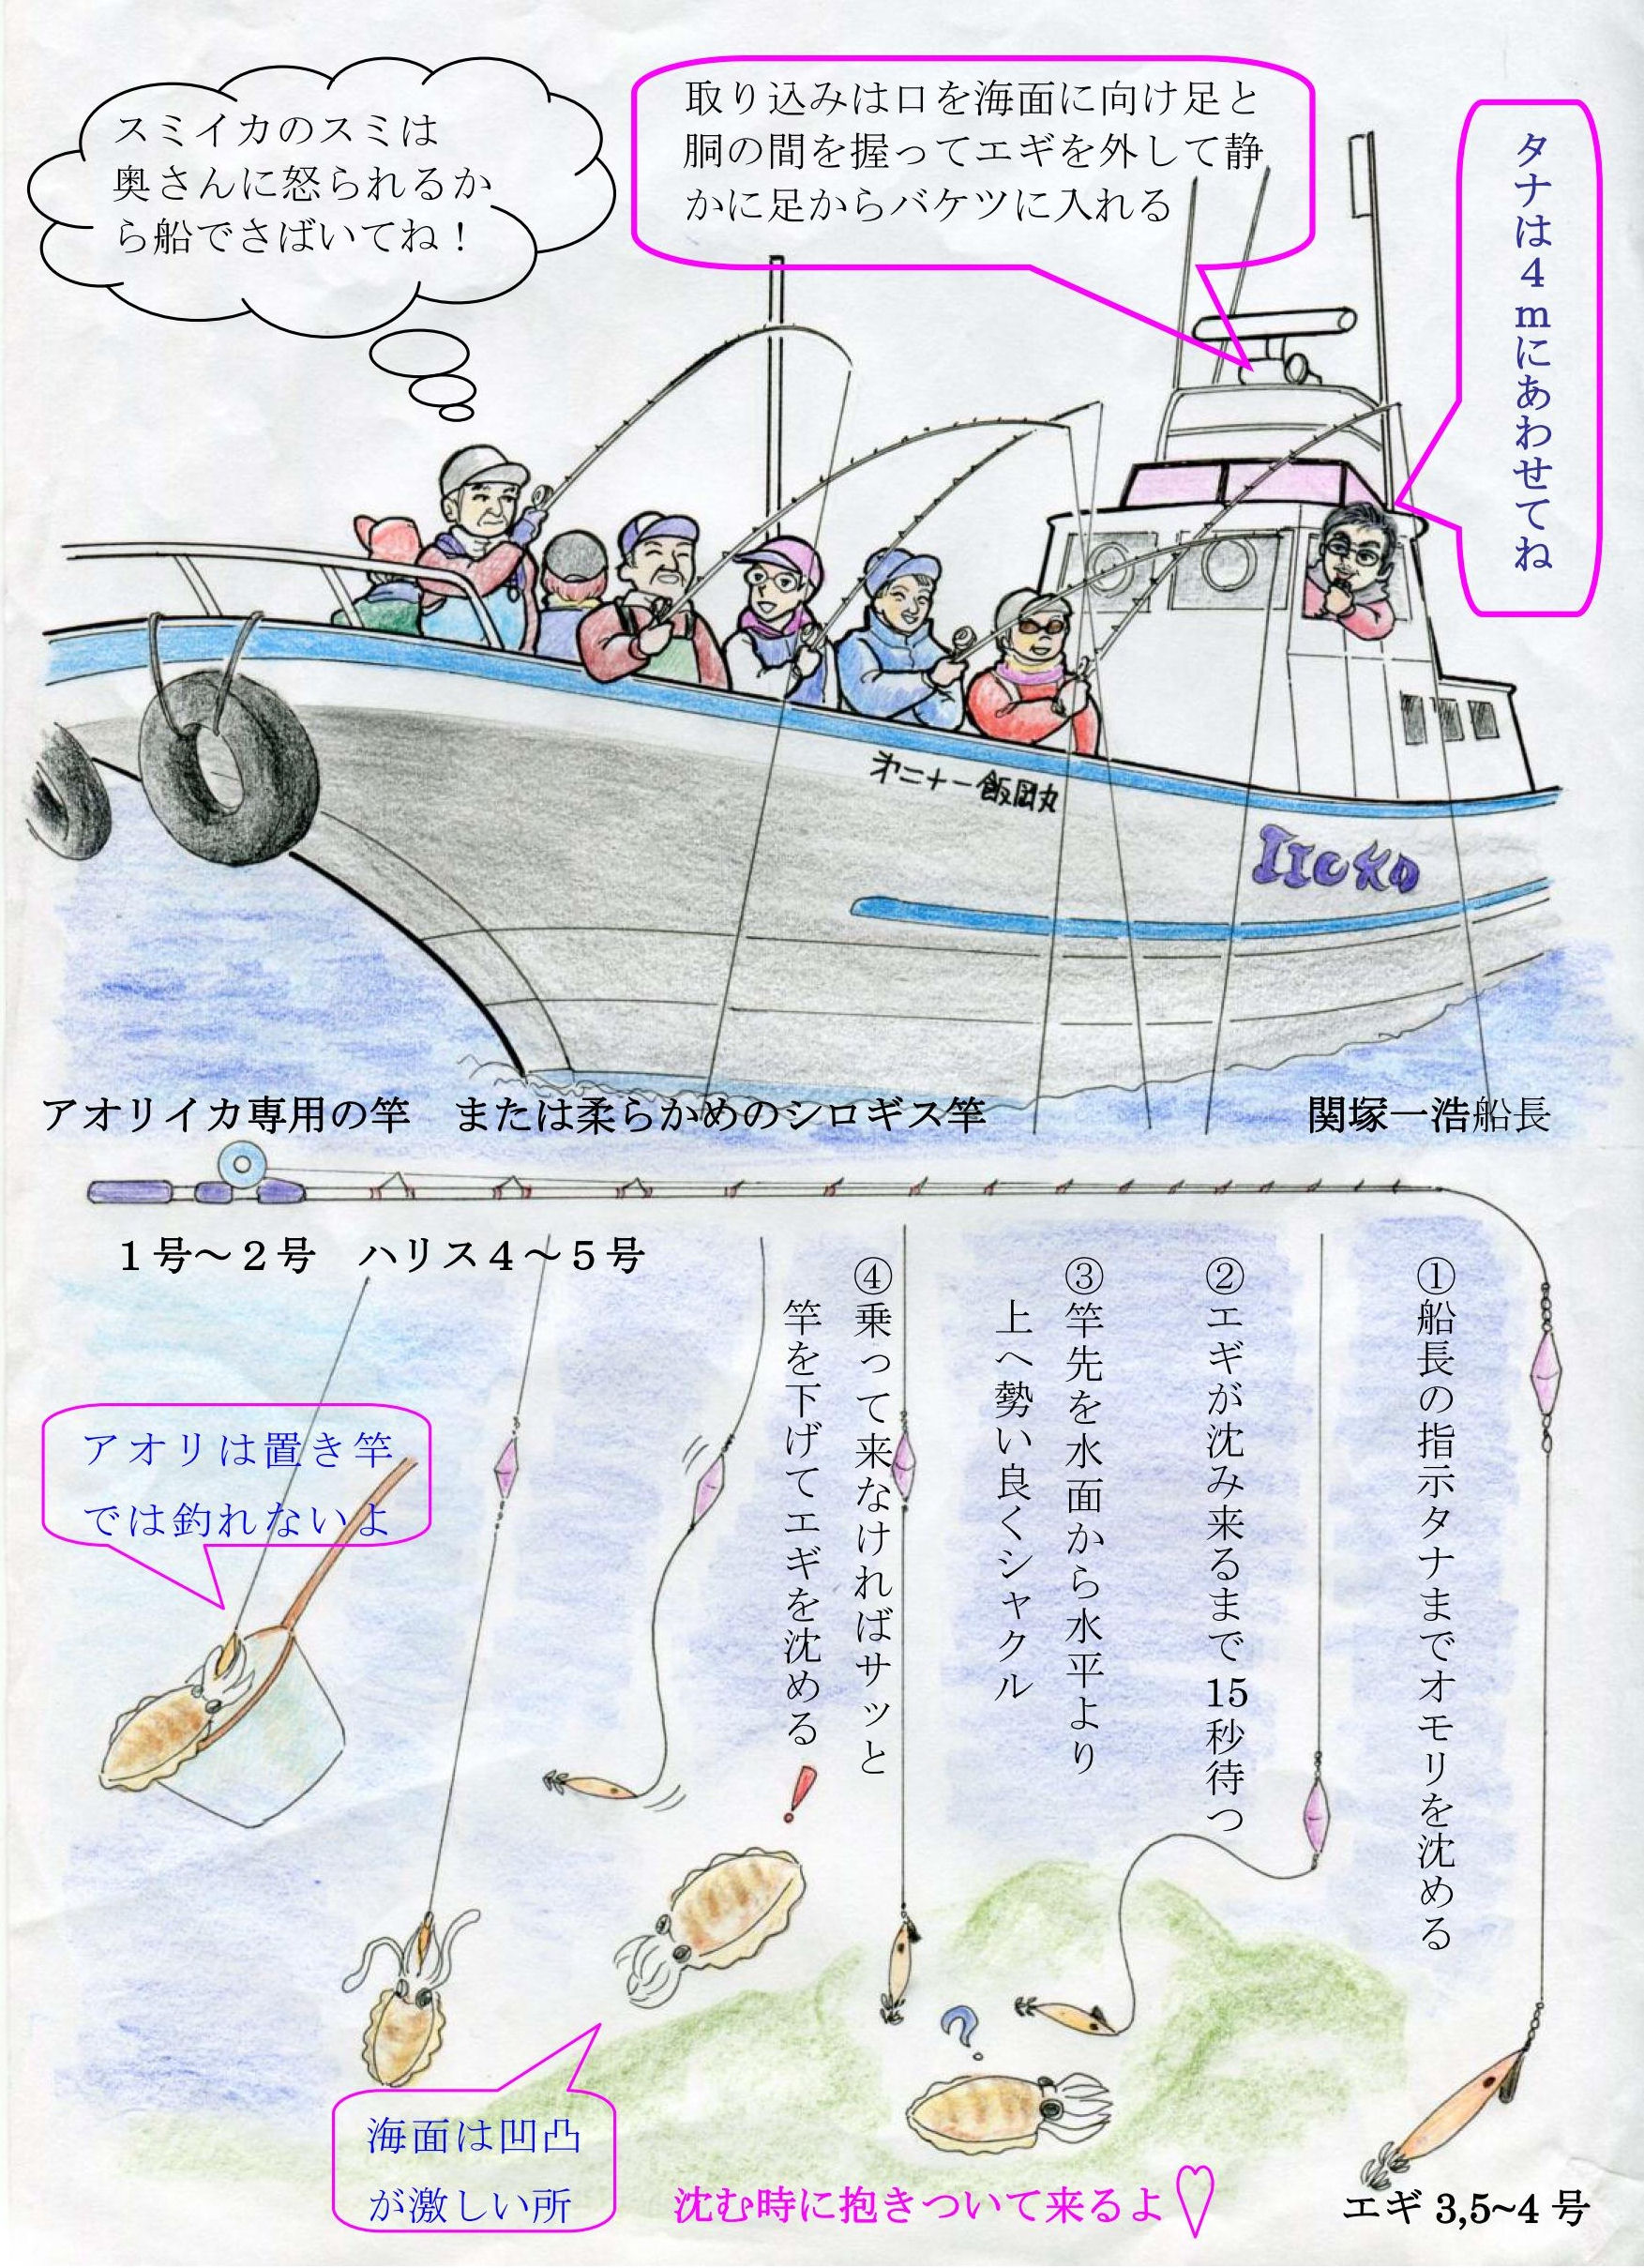 スミイカのスミは
奥さんに怒られるか
ら船でさばいてね！
取り込みは口を海面に向け足と
胴の間を握ってエギを外して静
かに足からバケツに入れる
タナは４ｍにあわせてね
第二十一飯岡丸
IIOKA
アオリイカ専用の竿　または柔らかめのシロギス竿
関塚一浩船長
１号～２号　ハリス４～５号
①船長の指示タナまでオモリを沈める
②エギが沈み来るまで15秒待つ
③竿先を水面から水平より
上へ勢い良くシャクル
④乗って来なければサッと
竿を下げてエギを沈める
アオリは置き竿
では釣れないよ
海面は凹凸
が激しい所
沈む時に抱きついて来るよ♡
エギ 3,5~4 号